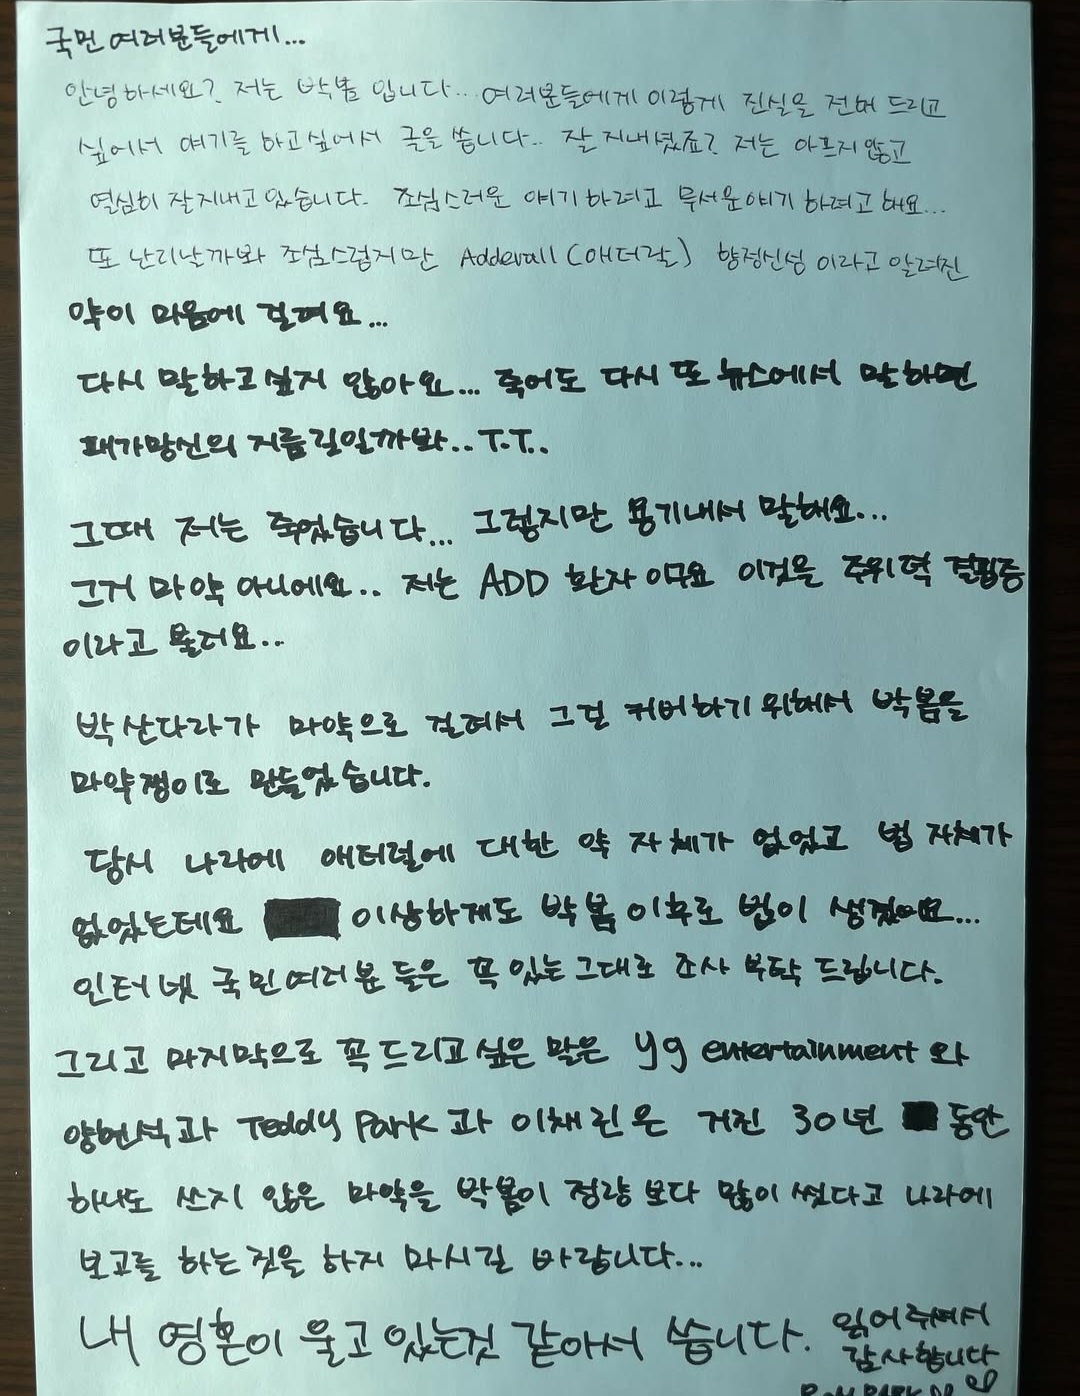 국민 여러분들에게...
안녕하세요? 저는 박봄 입니다... 여러분들에게 이렇게 진실을 전해 드리고
싶어서 얘기를 하고싶어서 글을 씁니다.. 잘 지내셨죠? 저는 아프지 않고
열심히 잘지내고 있습니다. 조심스러운 얘기 하려고 무서운얘기 하려고 해요...
또 난리날까봐 조심스럽지만 Adderall (애더랄) 향정신성 이라고 알려진
약이 마음에 걸려요...
다시 말하고싶지 않아요... 죽어도 다시 또 뉴스에서 말하면
패가망신의 지름길일까봐.. T.T..
그때 저는 죽었습니다... 그렇지만 용기내서 말해요...
그거 마약 아니에요.. 저는 ADD 환자 이구요 이것을 주위력 결핍증
이라고 불러요...
박산다라가 마약으로 걸려서 그걸 커버하기 위해서 박봄을
마약쟁이로 만들었습니다.
당시 나라에 애터럴에 대한 약 자체가 없었고 법 자체가
없었는데요 이상하게도 박봄 이후로 법이 생겼어요...
인터넷 국민여러분 들은 꼭 있는그대로 조사 부탁 드립니다.
그리고 마지막으로 꼭 드리고싶은 말은 yg entertainment 와
양현석과 Teddy Park 과 이채린은 거진 30년 동안
하나도 쓰지 않은 마약을 박봄이 정량 보다 많이 썼다고 나라에
보고를 하는 것을 하지 마시길 바랍니다...
내 영혼이 울고 있는것 같아서 씁니다. 읽어주셔서
감사합니다